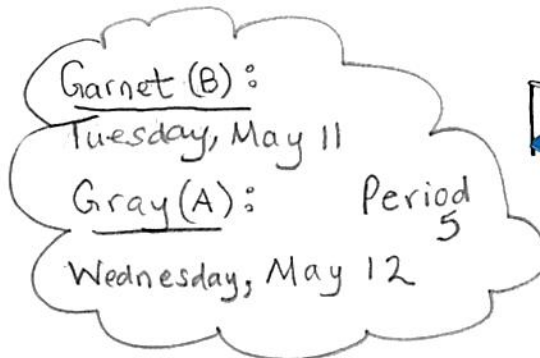 Garnet (B):
Tuesday, May 11
Gray (A): Period
5
Wednesday, May 12